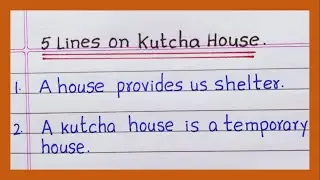 5 Lines on Kutcha House.
1. A house provides us shelter.
2. A kutcha house is a temporary
house.